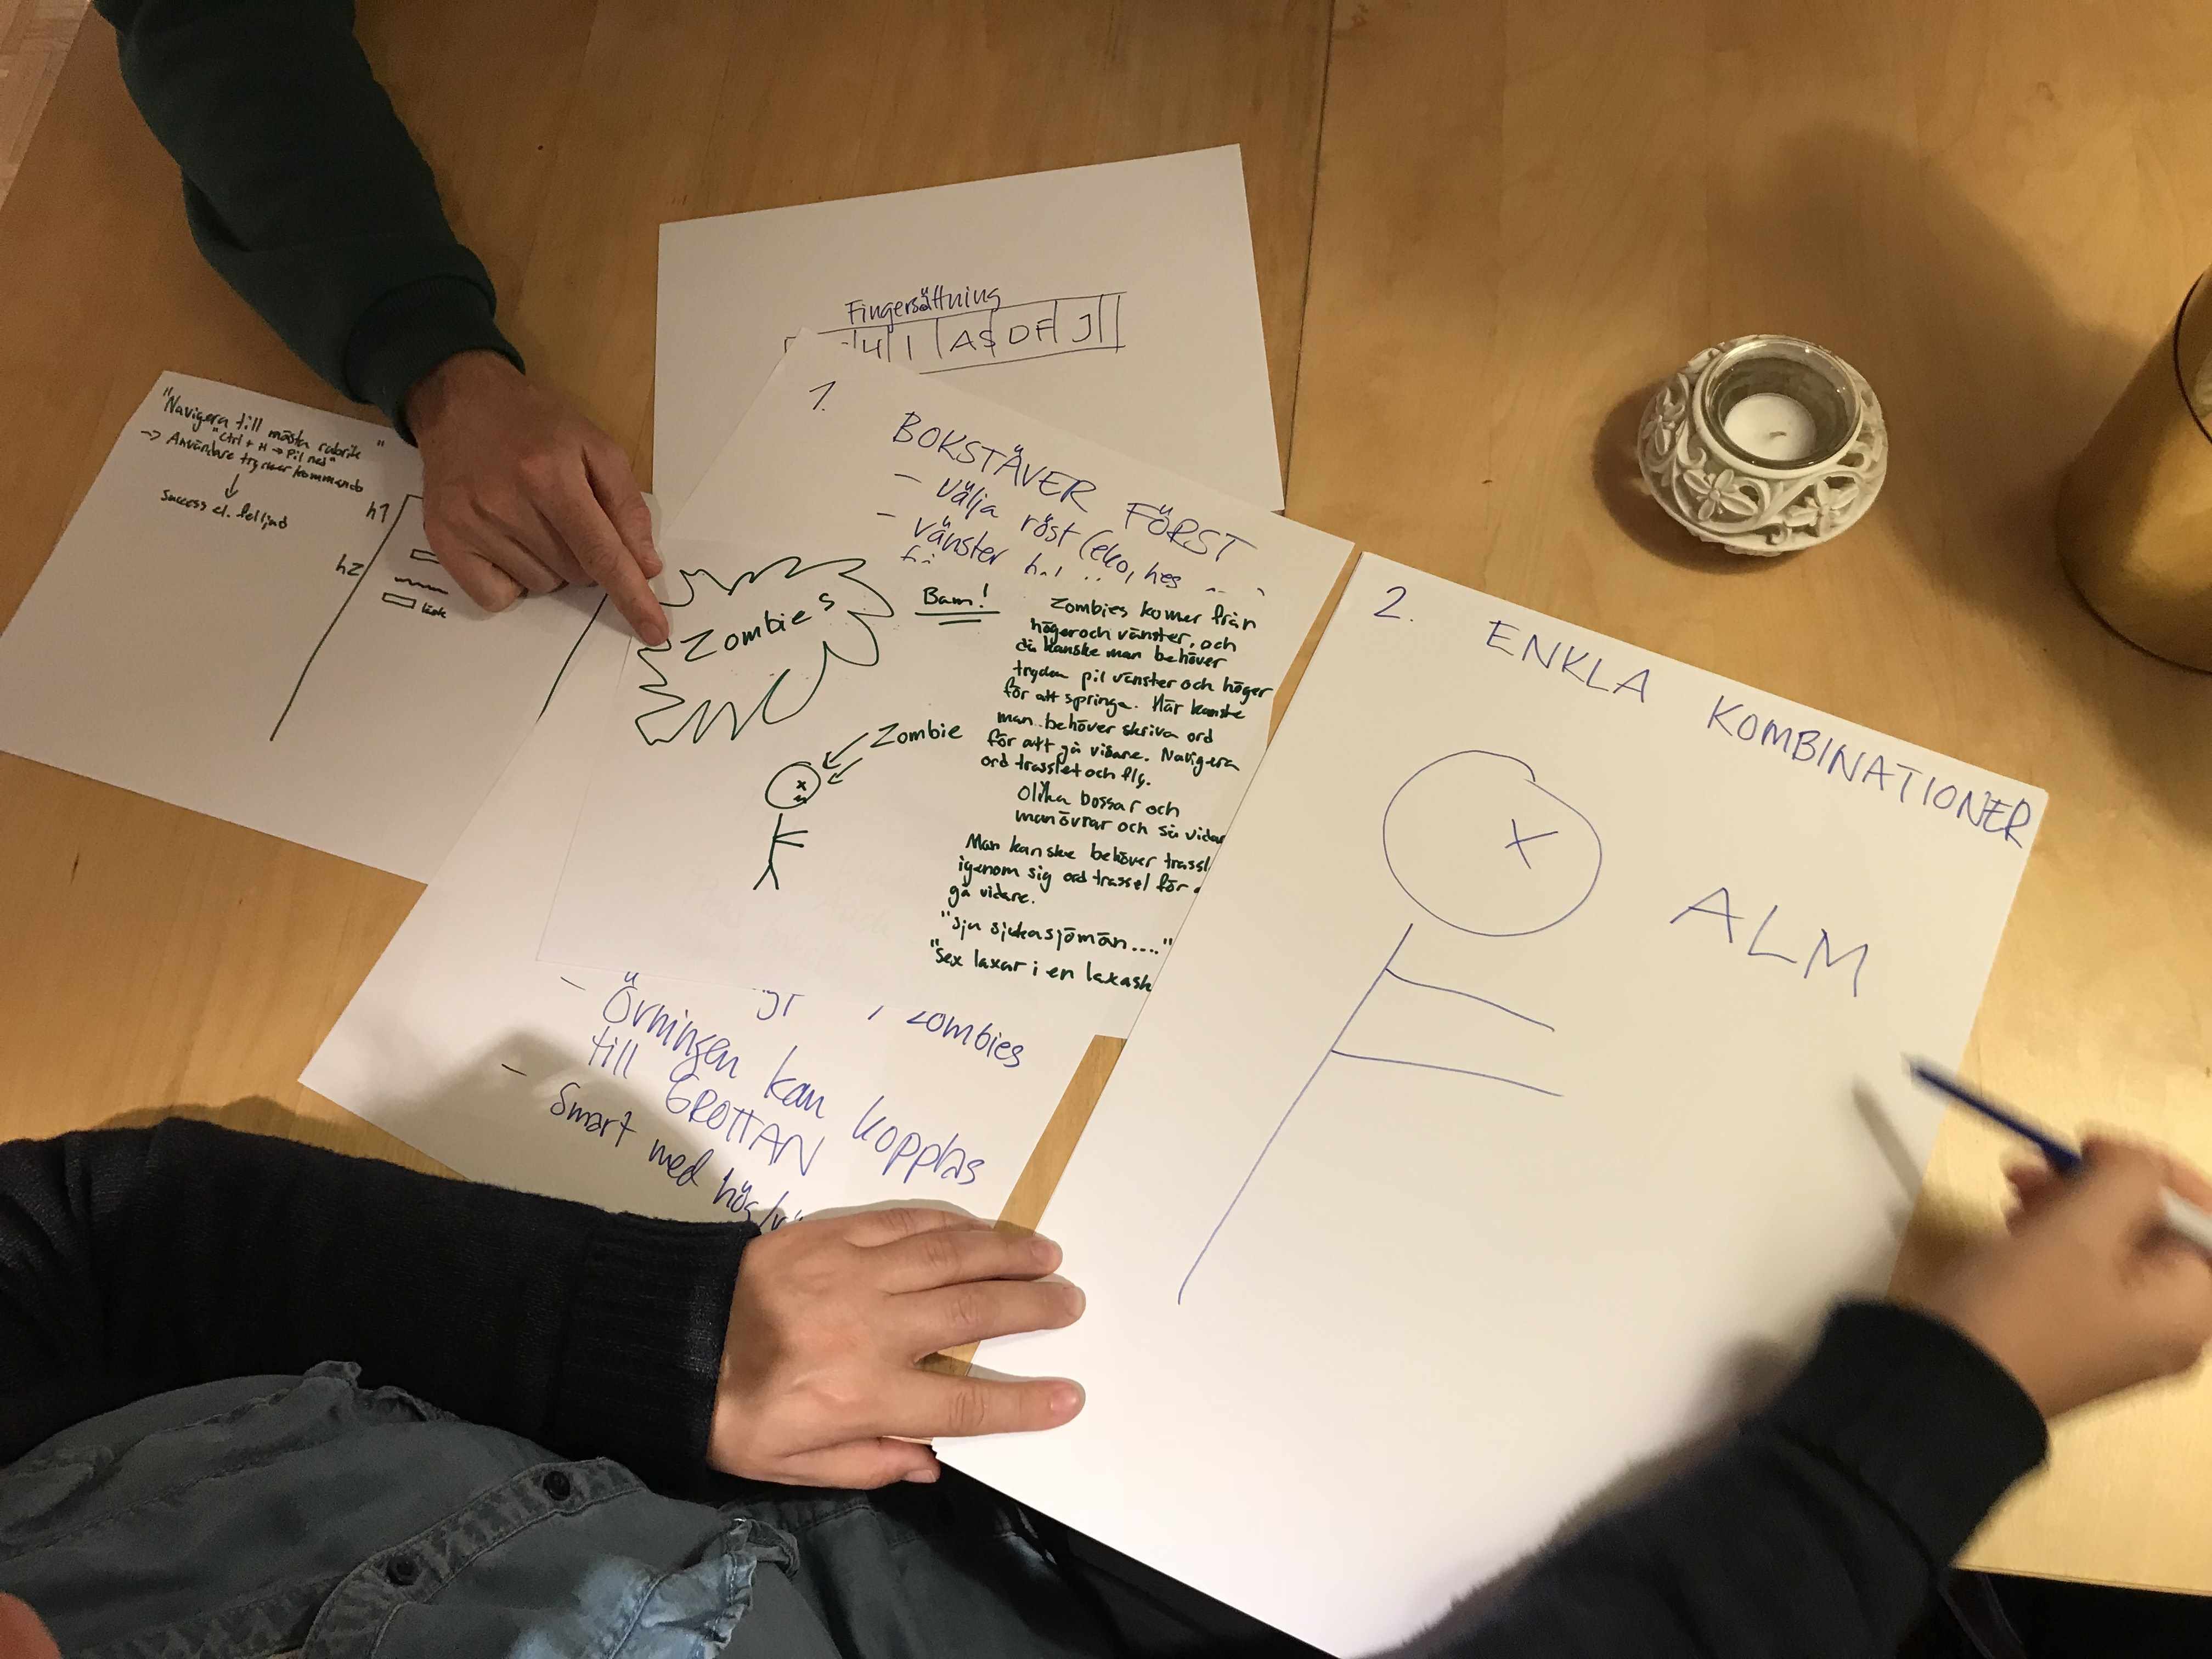 Fingersättning
4 I AS DF J
"Navigera till nästa rubrik"
"Ctrl + H → Pil ned"
→ Användare trycker kommando
↓
Success el. felljud
h1
h2
länk
1.
BOKSTÄVER FÖRST
- välja röst (eko, hes
- vänster
Zombies
Bam!
Zombie
Zombies komer från
höger och vänster, och
då kanske man behöver
trycka pil vänster och höger
för att springa. Här kanske
man behöver skriva ord
för att gå vidare. Navigera
ord trasslet och fly.
Olika bossar och
manövrar och så vidar
Man kanske behöver trassl
igenom sig ord trassel för
gå vidare.
"sju sjuka sjömän...."
"Sex laxar i en laxask
zombies
- Övningen kan kopplas
till GROTTAN
- Smart med
2. ENKLA KOMBINATIONER
X
ALM